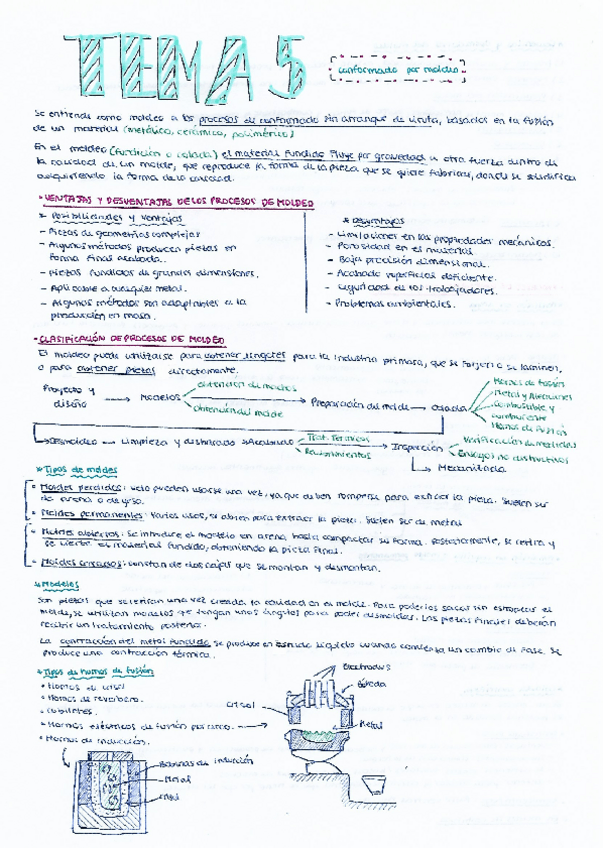 TEMA 5
conformado por moldeo
Se entiende como moldeo a los procesos de conformado sin arranque de viruta, basados en la fusión
de un material (metálico, cerámico, polimérico)
En el moldeo (fundición o colada) el material fundido fluye por gravedad u otra fuerza dentro de
la cavidad de un molde, que reproduce la forma de la pieza que se quiere fabricar, donde se solidifica
adquiriendo la forma de la cavidad.
- VENTAJAS Y DESVENTAJAS DE LOS PROCESOS DE MOLDEO
* Posibilidades y ventajas
- Piezas de geometrías complejas
- Algunos métodos producen piezas en
forma final acabada.
- Piezas fundidas de grandes dimensiones.
- Aplicable a cualquier metal.
- Algunos métodos son adaptables a la
producción en masa.
* Desventajas
- Limitaciones en las propiedades mecánicas.
- Porosidad en el material.
- Baja precisión dimensional.
- Acabado superficial deficiente.
- Seguridad de los trabajadores.
- Problemas ambientales.
- CLASIFICACIÓN DE PROCESOS DE MOLDEO
El moldeo puede utilizarse para obtener lingotes para la industria primaria, que se forjen o se laminen,
o para obtener piezas directamente.
Proyecto y
diseño
Modelos
obtención del modelo
obtención del molde
Preparación del molde
Colada
Hornos de fusión
Metal y Aleaciones
Combustible y
Desmoldeo
Limpieza y desbarbado
Acabado
Trat. Térmicos
Recubrimientos
Inspección
Verificación de medidas
Ensayos no destructivos
Mecanizado
* Tipos de moldes
Moldes perdidos: solo pueden usarse una vez, ya que deben romperse para extraer la pieza. Suelen ser
de arena o de yeso.
Moldes permanentes: varios usos, se abren para extraer la pieza. Suelen ser de metal
Moldes abiertos: Se introduce el modelo en arena hasta compactar su forma. Posteriormente, se retira y
se vierte el material fundido, obteniendo la pieza final.
Moldes cerrados: constan de dos cajas que se montan y desmontan.
* Modelos
Son piezas que se retiran una vez creada la cavidad en el molde. Para poderlos sacar sin estropear el
molde, se utilizan modelos que tengan unos ángulos para poder desmoldar. Las piezas finales deberán
recibir un tratamiento posterior.
La contracción del metal fundido se produce en estado líquido cuando comienza un cambio de fase. Se
produce una contracción térmica.
* Tipos de hornos de fusión
• Hornos de crisol
• Hornos de reverbero.
• Cubilotes.
• Hornos eléctricos de fusión por arco.
• Hornos de inducción.
Electrodos
Bóveda
Crisol
Metal
Bobinas de inducción
Metal
Crisol